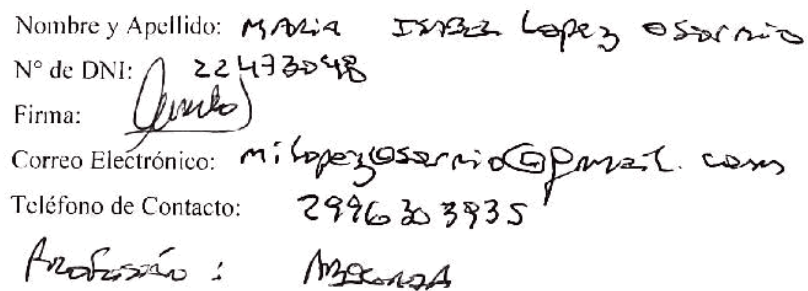 Nombre y Apellido: MARIA ISABEL Lopez Osornio
N° de DNI: 22473048
Firma:
Correo Electrónico: milopezosornio@gmail.com
Teléfono de Contacto: 2996303935
Profesión: ABOGADA